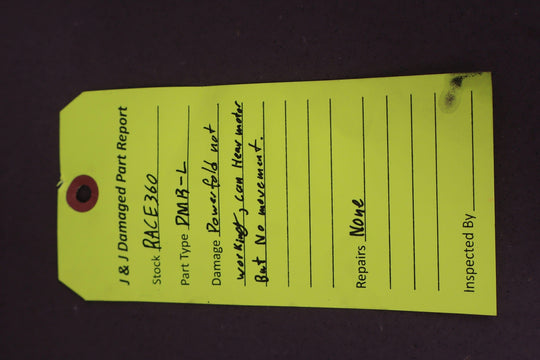 J & J Damaged Part Report
Stock RACE360
Part Type DMR-L
Damage Powerfold not
working, can Hear motor
But No movement.
Repairs None
Inspected By